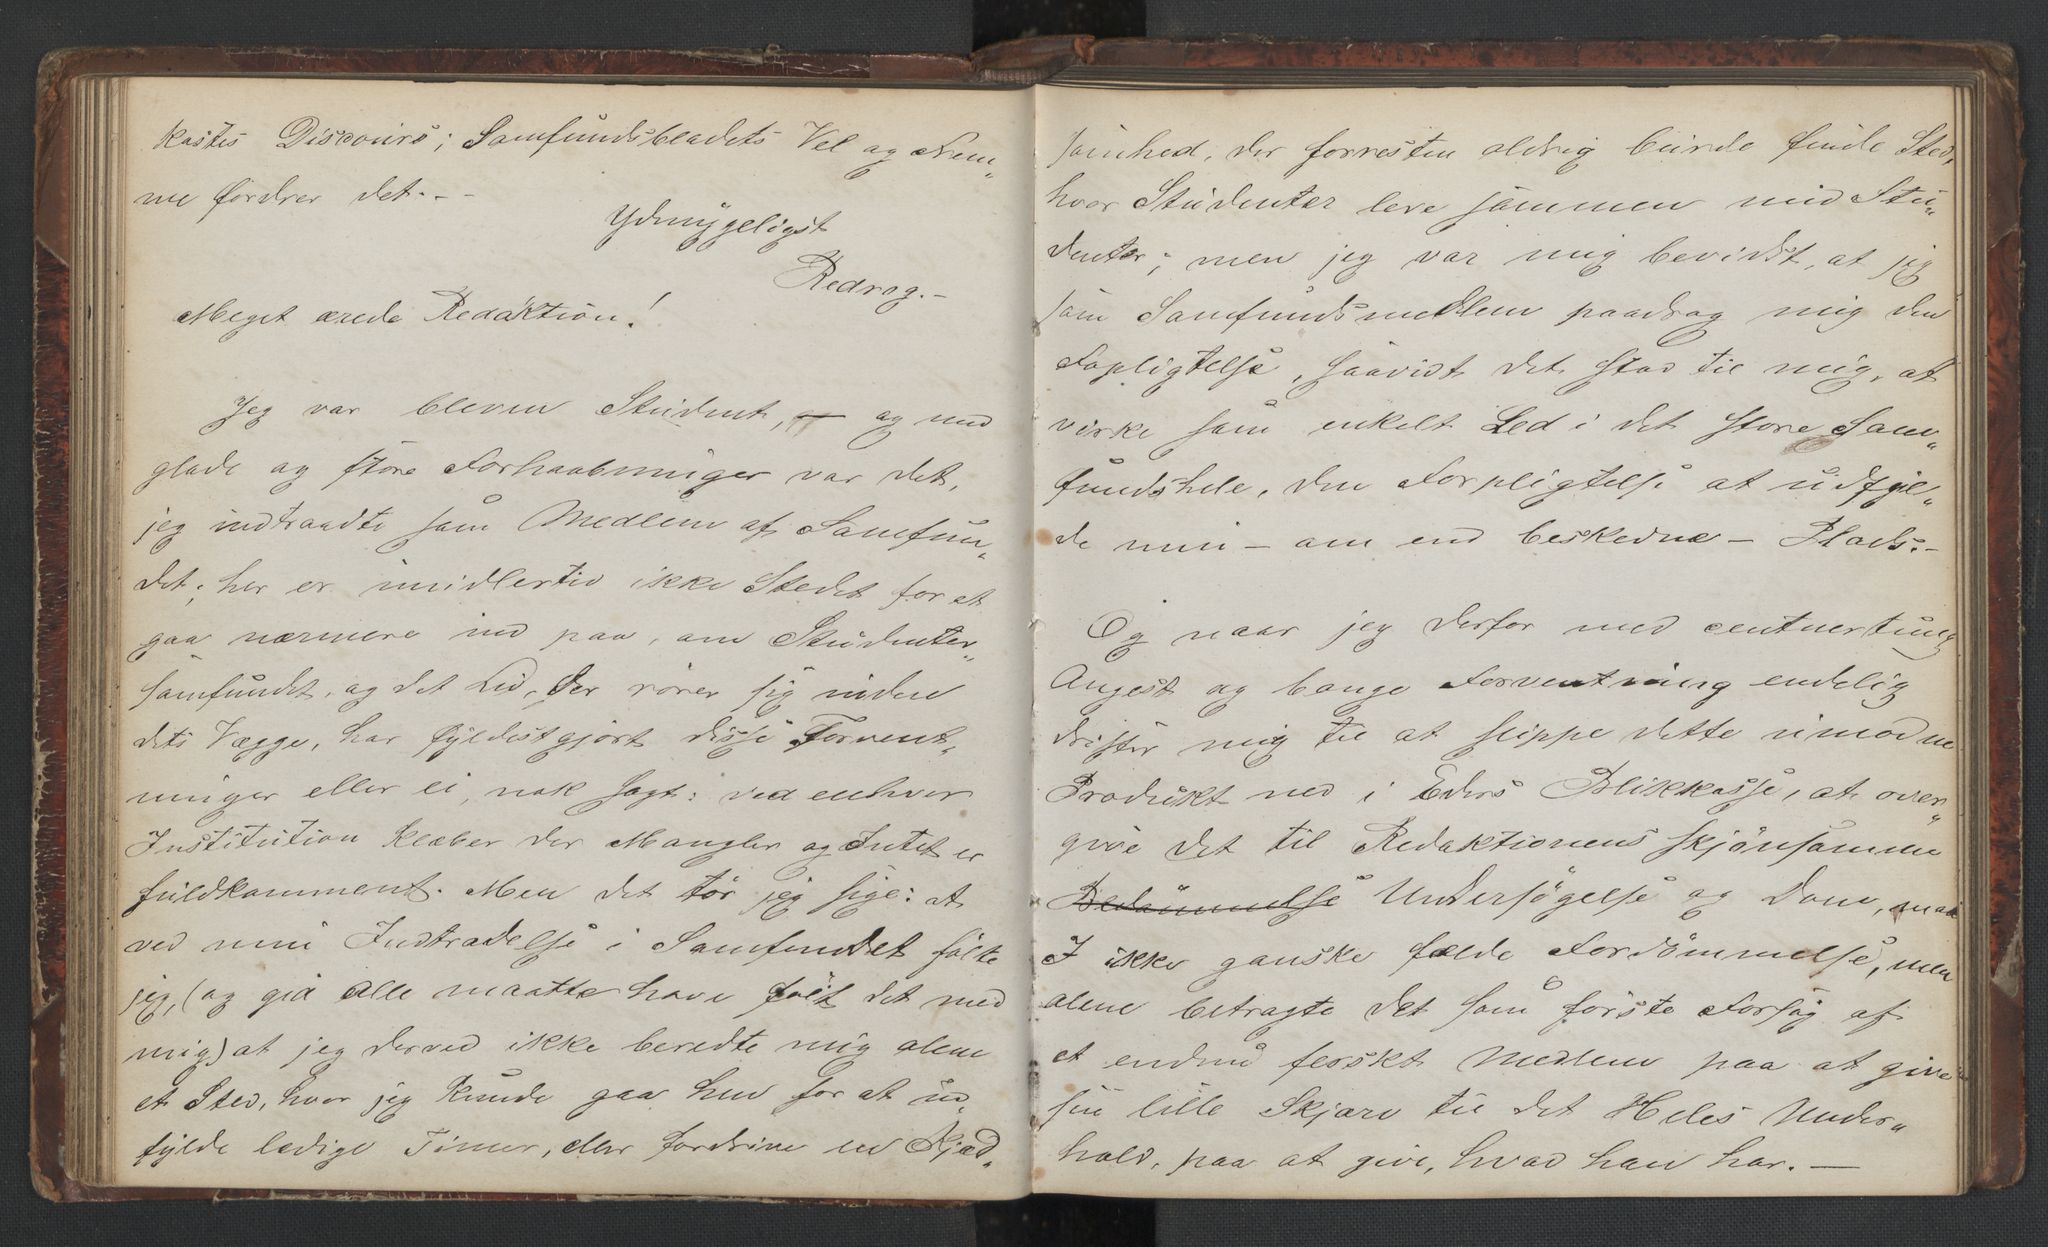 kastes Discours; Samfundsbladets Vel og Nem„
me fordrer det.–
Ydmygeligst
Redrag.–
Meget ærede Redaktion!
Jeg var bleven Student, – og med
glade og store Forhaabninger var det,
jeg indtraadte som Medlem af Samfun„
det; her er imidlertid ikke Stedet for at
gaa nærmere ind paa, om Studenter„
samfundet, og det Liv, der rører sig inden
dets Vægge, har fyldestgjort disse Forvent„
ninger eller ei, nok sagt: ved enhver
Institution klæber der Mangler og Intet er
fuldkomment. Men det tør jeg sige: at
ved min Indtrædelse i Samfundet følte
jeg, (og gid alle maatte have følt det med
mig) at jeg derved ikke beredte mig alene
et Sted, hvor jeg kunde gaa hen for at ud„
fylde ledige Timer, eller fordrive en Kjed„
somhed, der forresten aldrig burde finde Sted,
hvor Studenter leve sammen med Stu„
denter; men jeg var mig bevidst, at jeg
som Samfundsmedlem paadrog mig den
Fopligtelse, saavidt det stod til mig, at
virke som enkelt Led i det store Sam„
fundshele, den Forpligtelse at udfyl„
de min – om end beskedne – Plads.–
Og naar jeg derfor med centnertung
Angest og bange Forventning endelig
drister mig til at slippe dette umodne
Produkt ned i Eders Blikkasse, at over„
give det til Redaktionens skjønsomme
Bedømmelse Undersøgelse og Dom, maa
I ikke ganske fælde Fordømmelse, men
alene betragte det som første Forsøg af
et endnu ferskt Medlem paa at give
sin lille Skjærv til det Heles Under„
hold, paa at give, hvad han har. –